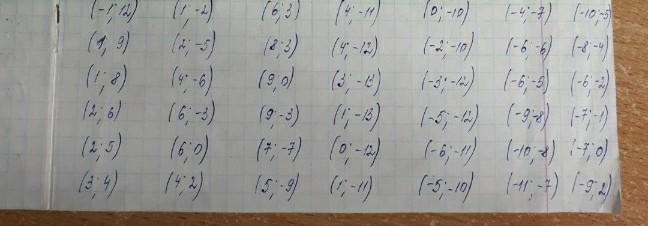 (-1; 12) (1; -2) (6; 3) (4; -11) (0; -10) (-4; -7) (-10; -5)
(1; 9) (2; -5) (8; 3) (4; -12) (-2; -10) (-6; -6) (-8; -4)
(1; 8) (4; -6) (9, 0) (3; -13) (-3; -12) (-6; -5) (-6; -2)
(2; 6) (6; -3) (9; -3) (1; -13) (-5; -12) (-9; -8) (-7; -1)
(2; 5) (6; 0) (7; -7) (0; -12) (-6; -11) (-10; -8) (-7; 0)
(3; 4) (4; 2) (5; -9) (1; -11) (-5; -10) (-11; -7) (-9; 2)